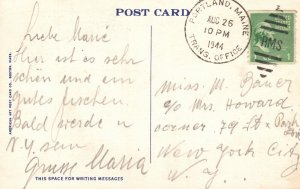 POST CARD
PORTLAND, MAINE
AUG 26
10 PM
1944
TRANS. OFFICE
RMS
Liebe Marie
Hier ist es sehr
schön und ein
gutes fischen.
Bald werde n
N.Y. sein
Gruss Maria
Miss. M. Bauer
c/o Mrs. Howard
corner 79 St + Park
New York City
N.Y.
THIS SPACE FOR WRITING MESSAGES
AMERICAN ART POST CARD CO., BOSTON, MASS.